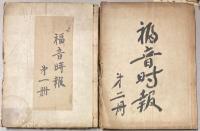 福音時報
第一冊
福音時報
第二冊